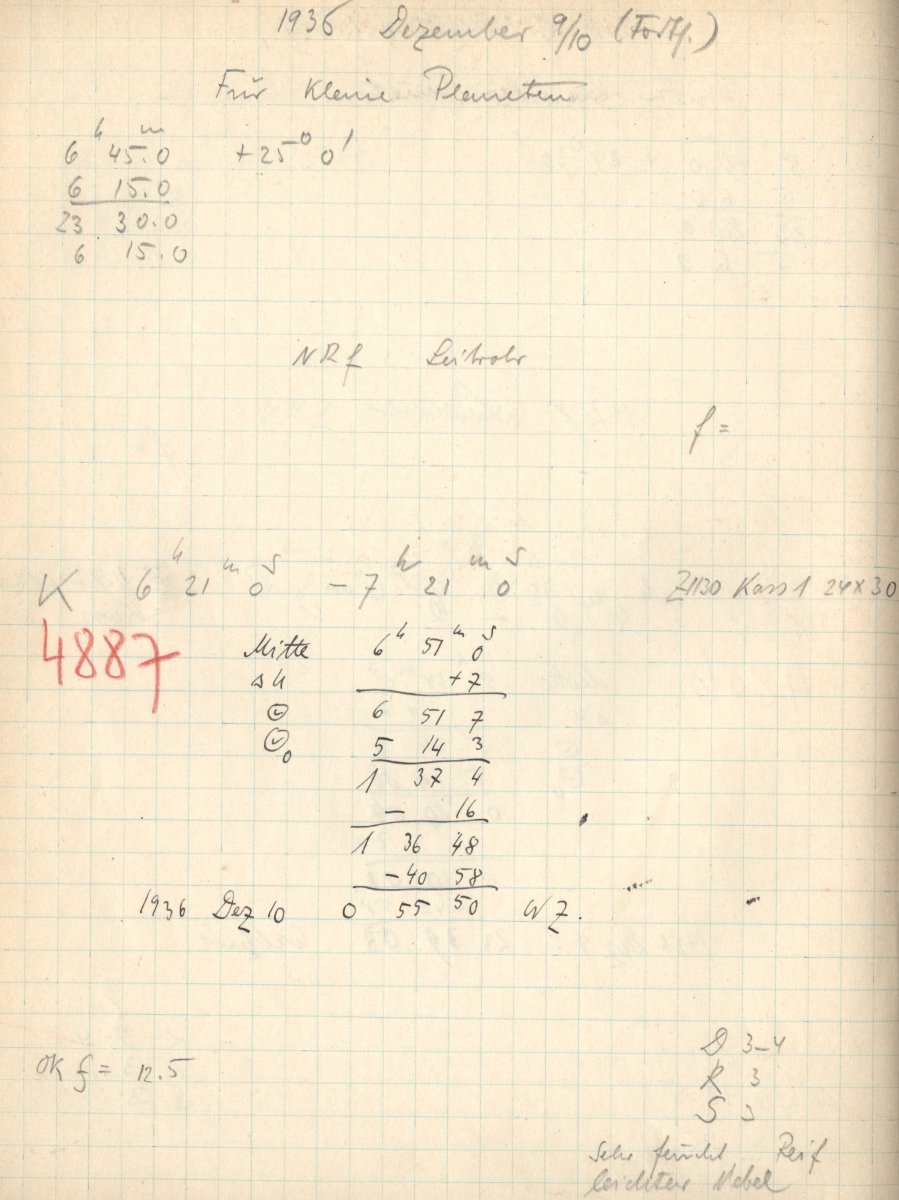 1936 Dezember 9/10 (Forts.)
Für Kleine Planeten
6ʰ 45ᵐ.0 +25° 0'
6 15.0
23 30.0
6 15.0
NRf Leitrohr
f =
K 6ʰ 21ᵐ 0ˢ – 7ʰ 21ᵐ 0ˢ Z1130 Kass 1 24×30
4887
Mitte 6ʰ 51ᵐ 0ˢ
Δu +7
☉ 6 51 7
☉₀ 5 14 3
1 37 4
– 16
1 36 48
–40 58
1936 Dez 10 0 55 50 WZ.
OK f = 12.5
D 3–4
R 3
S 3
Sehr feucht Reif
leichter Nebel